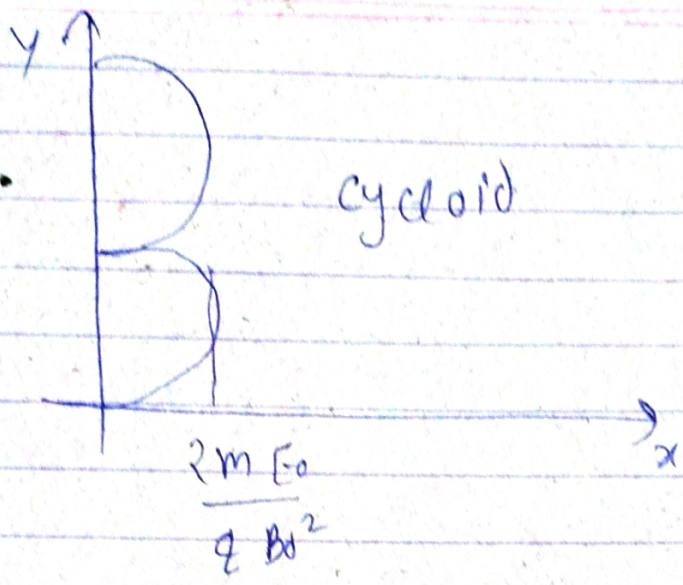 y
cycloid
x
2m E₀
q B₀²